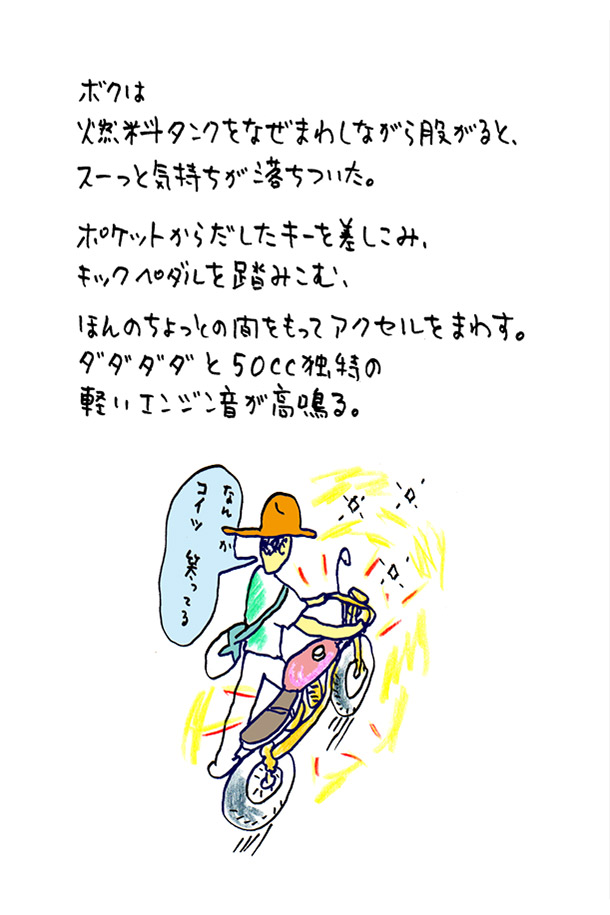 ボクは
燃料タンクをなぜまわしながら股がると、
スーっと気持ちが落ちついた。
ポケットからだしたキーを差しこみ、
キックペダルを踏みこむ、
ほんのちょっとの間をもってアクセルをまわす。
ダダダダと50cc独特の
軽いエンジン音が高鳴る。
なんか
コイツ 笑ってる